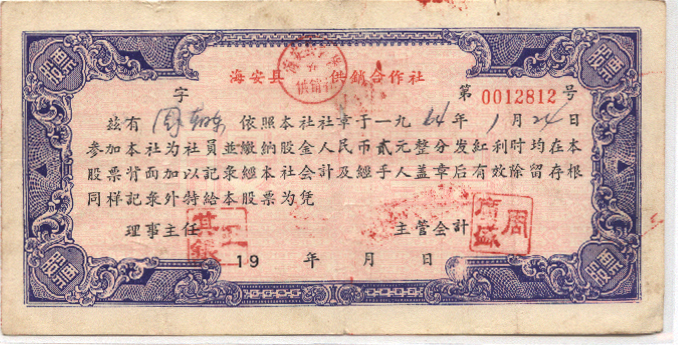 股票 股票
海安县 供銷合作社
字 第 0012812 号
兹有 周 依照本社社章于一九64年1月24日
参加本社为社員並繳納股金人民币貳元整分发紅利时均在本
股票背面加以記彔經本社会計及經手人盖章后有效除留存根
同样記彔外特給本股票为凭
理事主任 主管会計
周广盛
19 年 月 日
股票 股票